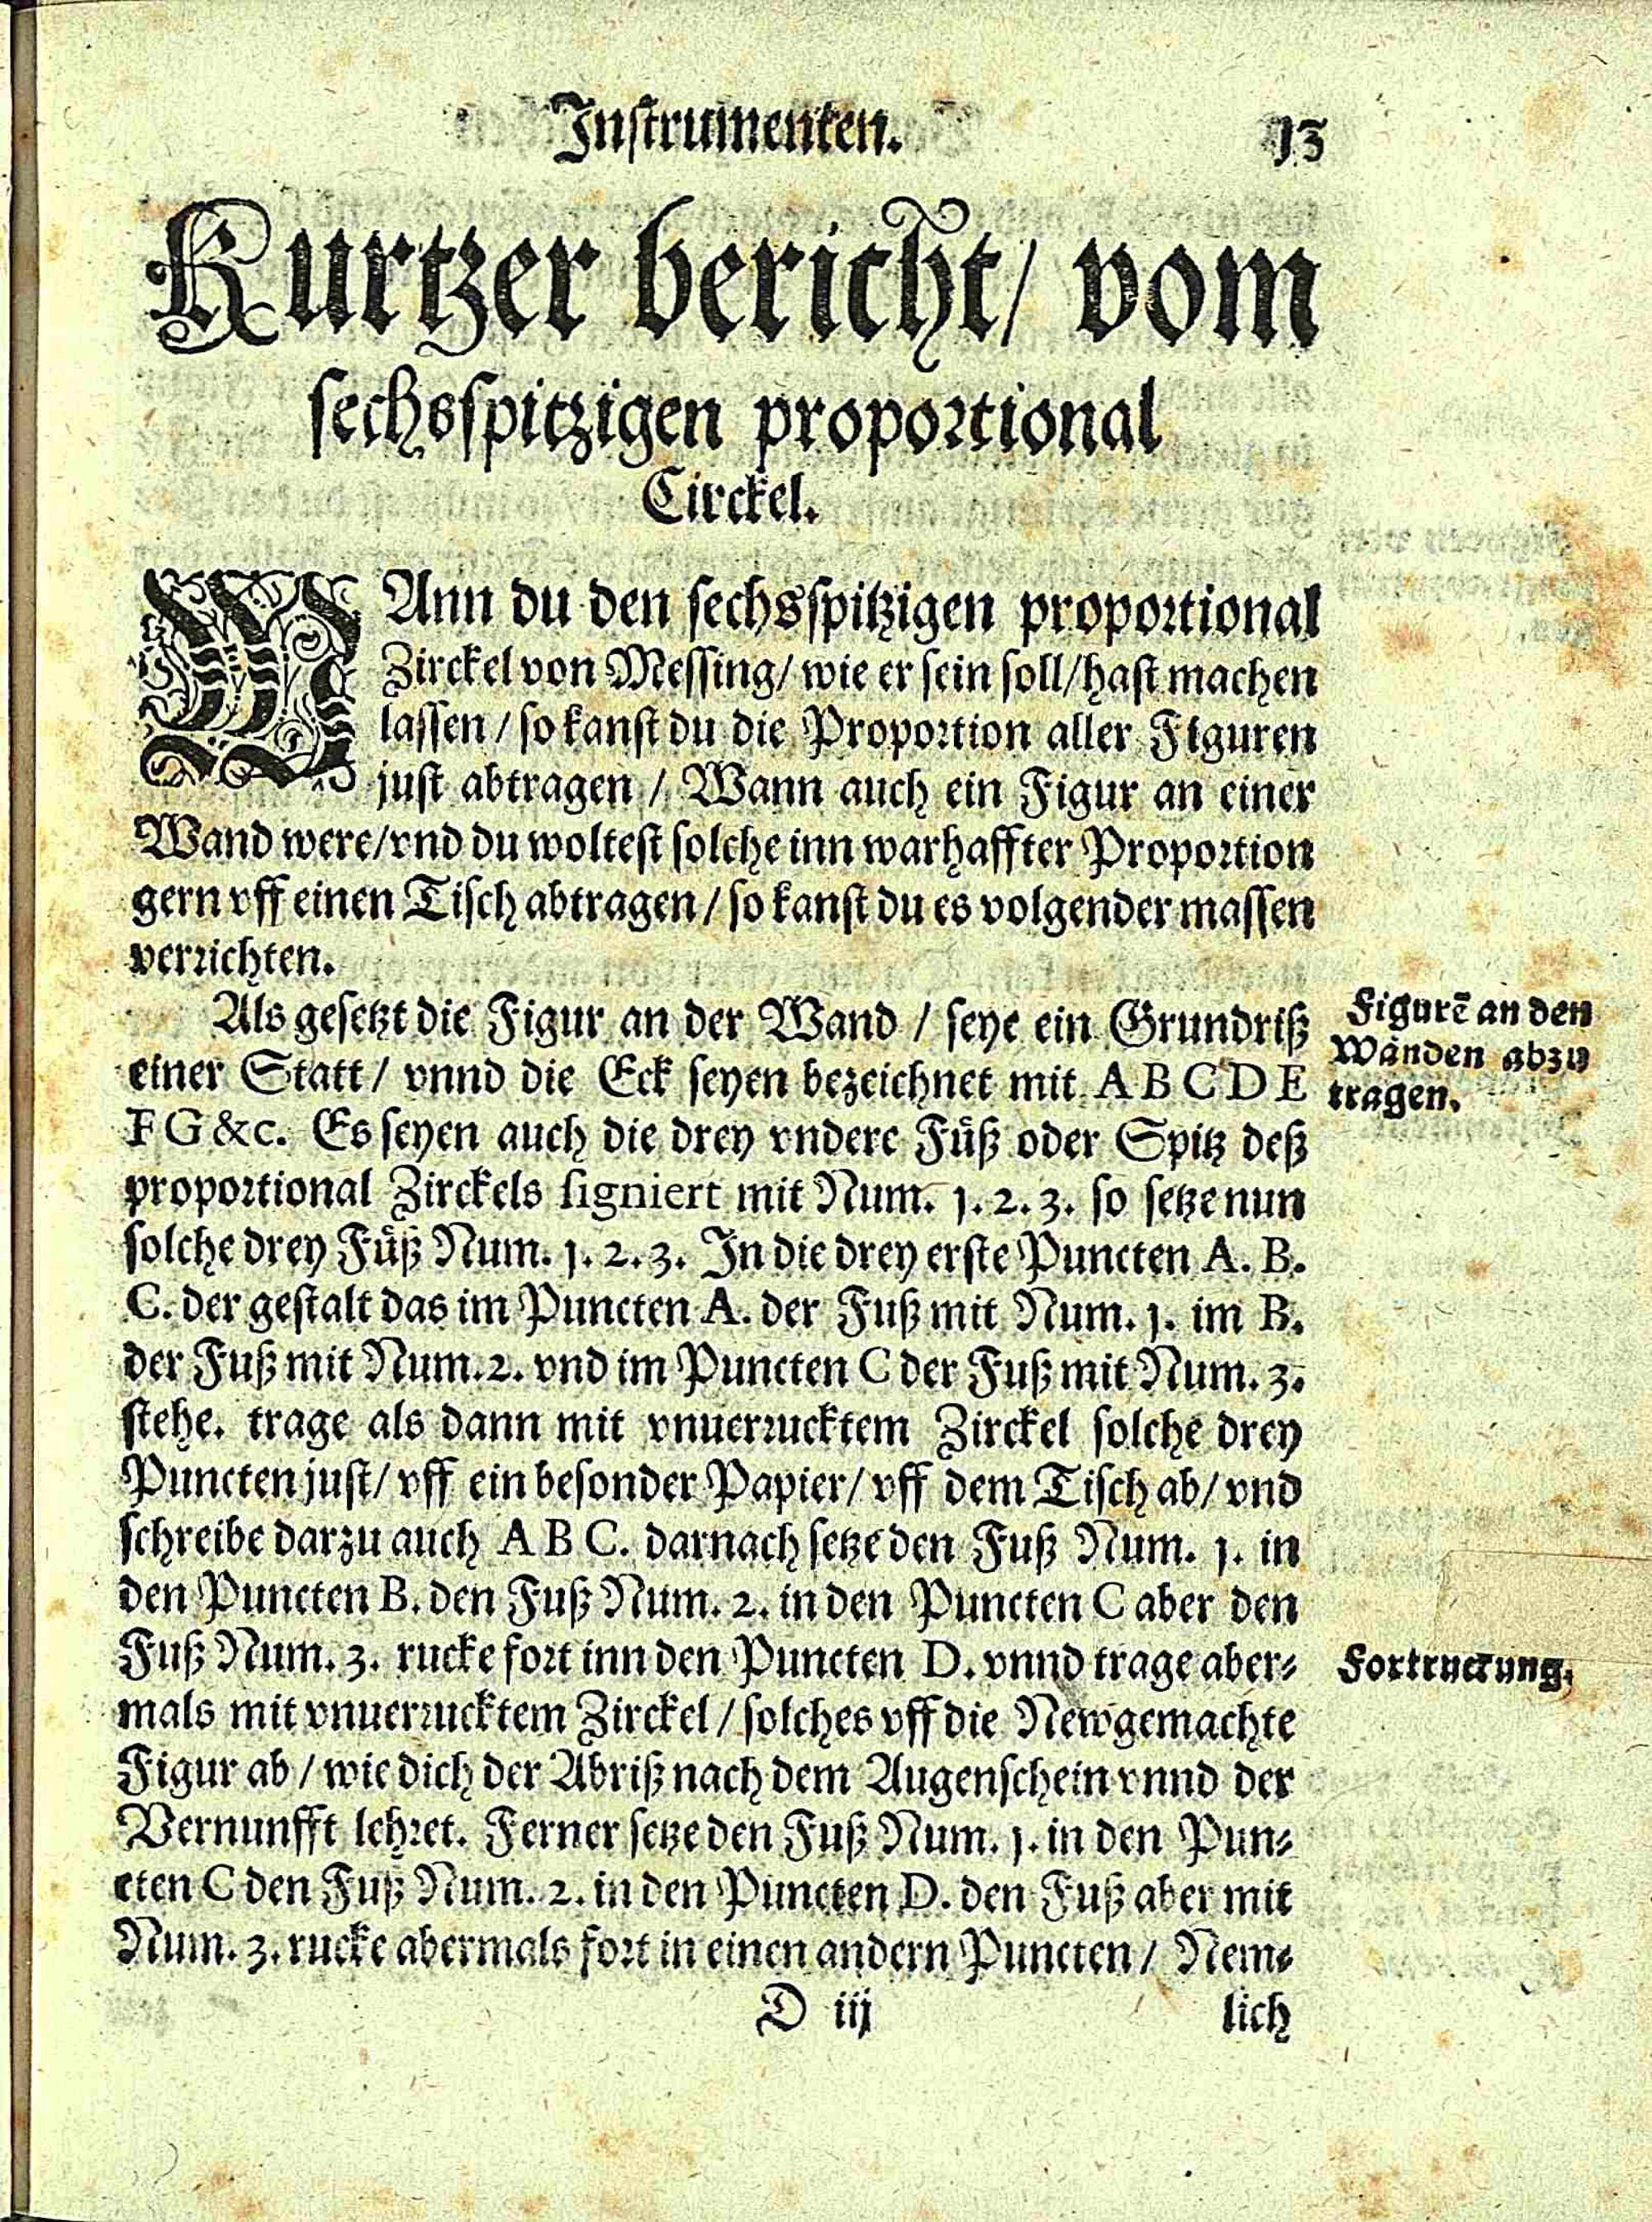 Instrumenten. 13
Kurtzer bericht/ vom
sechsspitzigen proportional
Circkel.
WAnn du den sechsspitzigen proportional
Zirckel von Messing/ wie er sein soll/ hast machen
lassen / so kanst du die Proportion aller Figuren
just abtragen / Wann auch ein Figur an einer
Wand were/ vnd du woltest solche inn warhaffter Proportion
gern vff einen Tisch abtragen / so kanst du es volgender massen
verrichten.
Als gesetzt die Figur an der Wand / seye ein Grundriß
einer Statt / vnnd die Eck seyen bezeichnet mit A B C D E
F G &c. Es seyen auch die drey vndere Füß oder Spitz deß
proportional Zirckels signiert mit Num. 1. 2. 3. so setze nun
solche drey Füß Num. 1. 2. 3. In die drey erste Puncten A. B.
C. der gestalt das im Puncten A. der Fuß mit Num. 1. im B.
der Fuß mit Num. 2. vnd im Puncten C der Fuß mit Num. 3.
stehe. trage als dann mit vnuerrucktem Zirckel solche drey
Puncten just/ vff ein besonder Papier/ vff dem Tisch ab/ vnd
schreibe darzu auch A B C. darnach setze den Fuß Num. 1. in
den Puncten B. den Fuß Num. 2. in den Puncten C aber den
Fuß Num. 3. rucke fort inn den Puncten D. vnnd trage aber⸗
mals mit vnuerrucktem Zirckel / solches vff die Newgemachte
Figur ab / wie dich der Abriß nach dem Augenschein vnnd der
Vernunfft lehret. Ferner setze den Fuß Num. 1. in den Pun⸗
cten C den Fuß Num. 2. in den Puncten D. den Fuß aber mit
Num. 3. rucke abermals fort in einen andern Puncten / Nem⸗
D iij lich
Figurē an den
Wänden abzu
tragen.
Fortruckung.